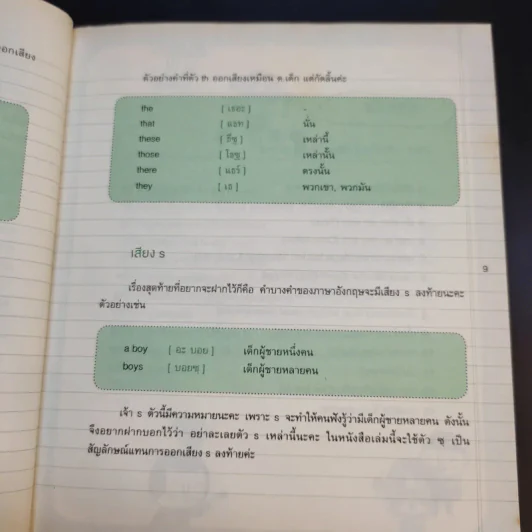 อกเสียง
ตัวอย่างคำที่ตัว th ออกเสียงเหมือน ด.เด็ก แต่กัดลิ้นค่ะ
the [ เธอะ ] -
that [ แธท ] นั่น
these [ ธีซ ] เหล่านี้
those [ โธซ ] เหล่านั้น
there [ แธร์ ] ตรงนั้น
they [ เธ ] พวกเขา, พวกมัน
เสียง s
9
เรื่องสุดท้ายที่อยากจะฝากไว้ก็คือ คำบางคำของภาษาอังกฤษจะมีเสียง s ลงท้ายนะคะ
ตัวอย่างเช่น
a boy [ อะ บอย ] เด็กผู้ชายหนึ่งคน
boys [ บอยซฺ ] เด็กผู้ชายหลายคน
เจ้า s ตัวนี้มีความหมายนะคะ เพราะ s จะทำให้คนฟังรู้ว่ามีเด็กผู้ชายหลายคน ดังนั้น
จึงอยากฝากบอกไว้ว่า อย่าละเลยตัว s เหล่านี้นะคะ ในหนังสือเล่มนี้จะใช้ตัว ซฺ เป็น
สัญลักษณ์แทนการออกเสียง s ลงท้ายค่ะ